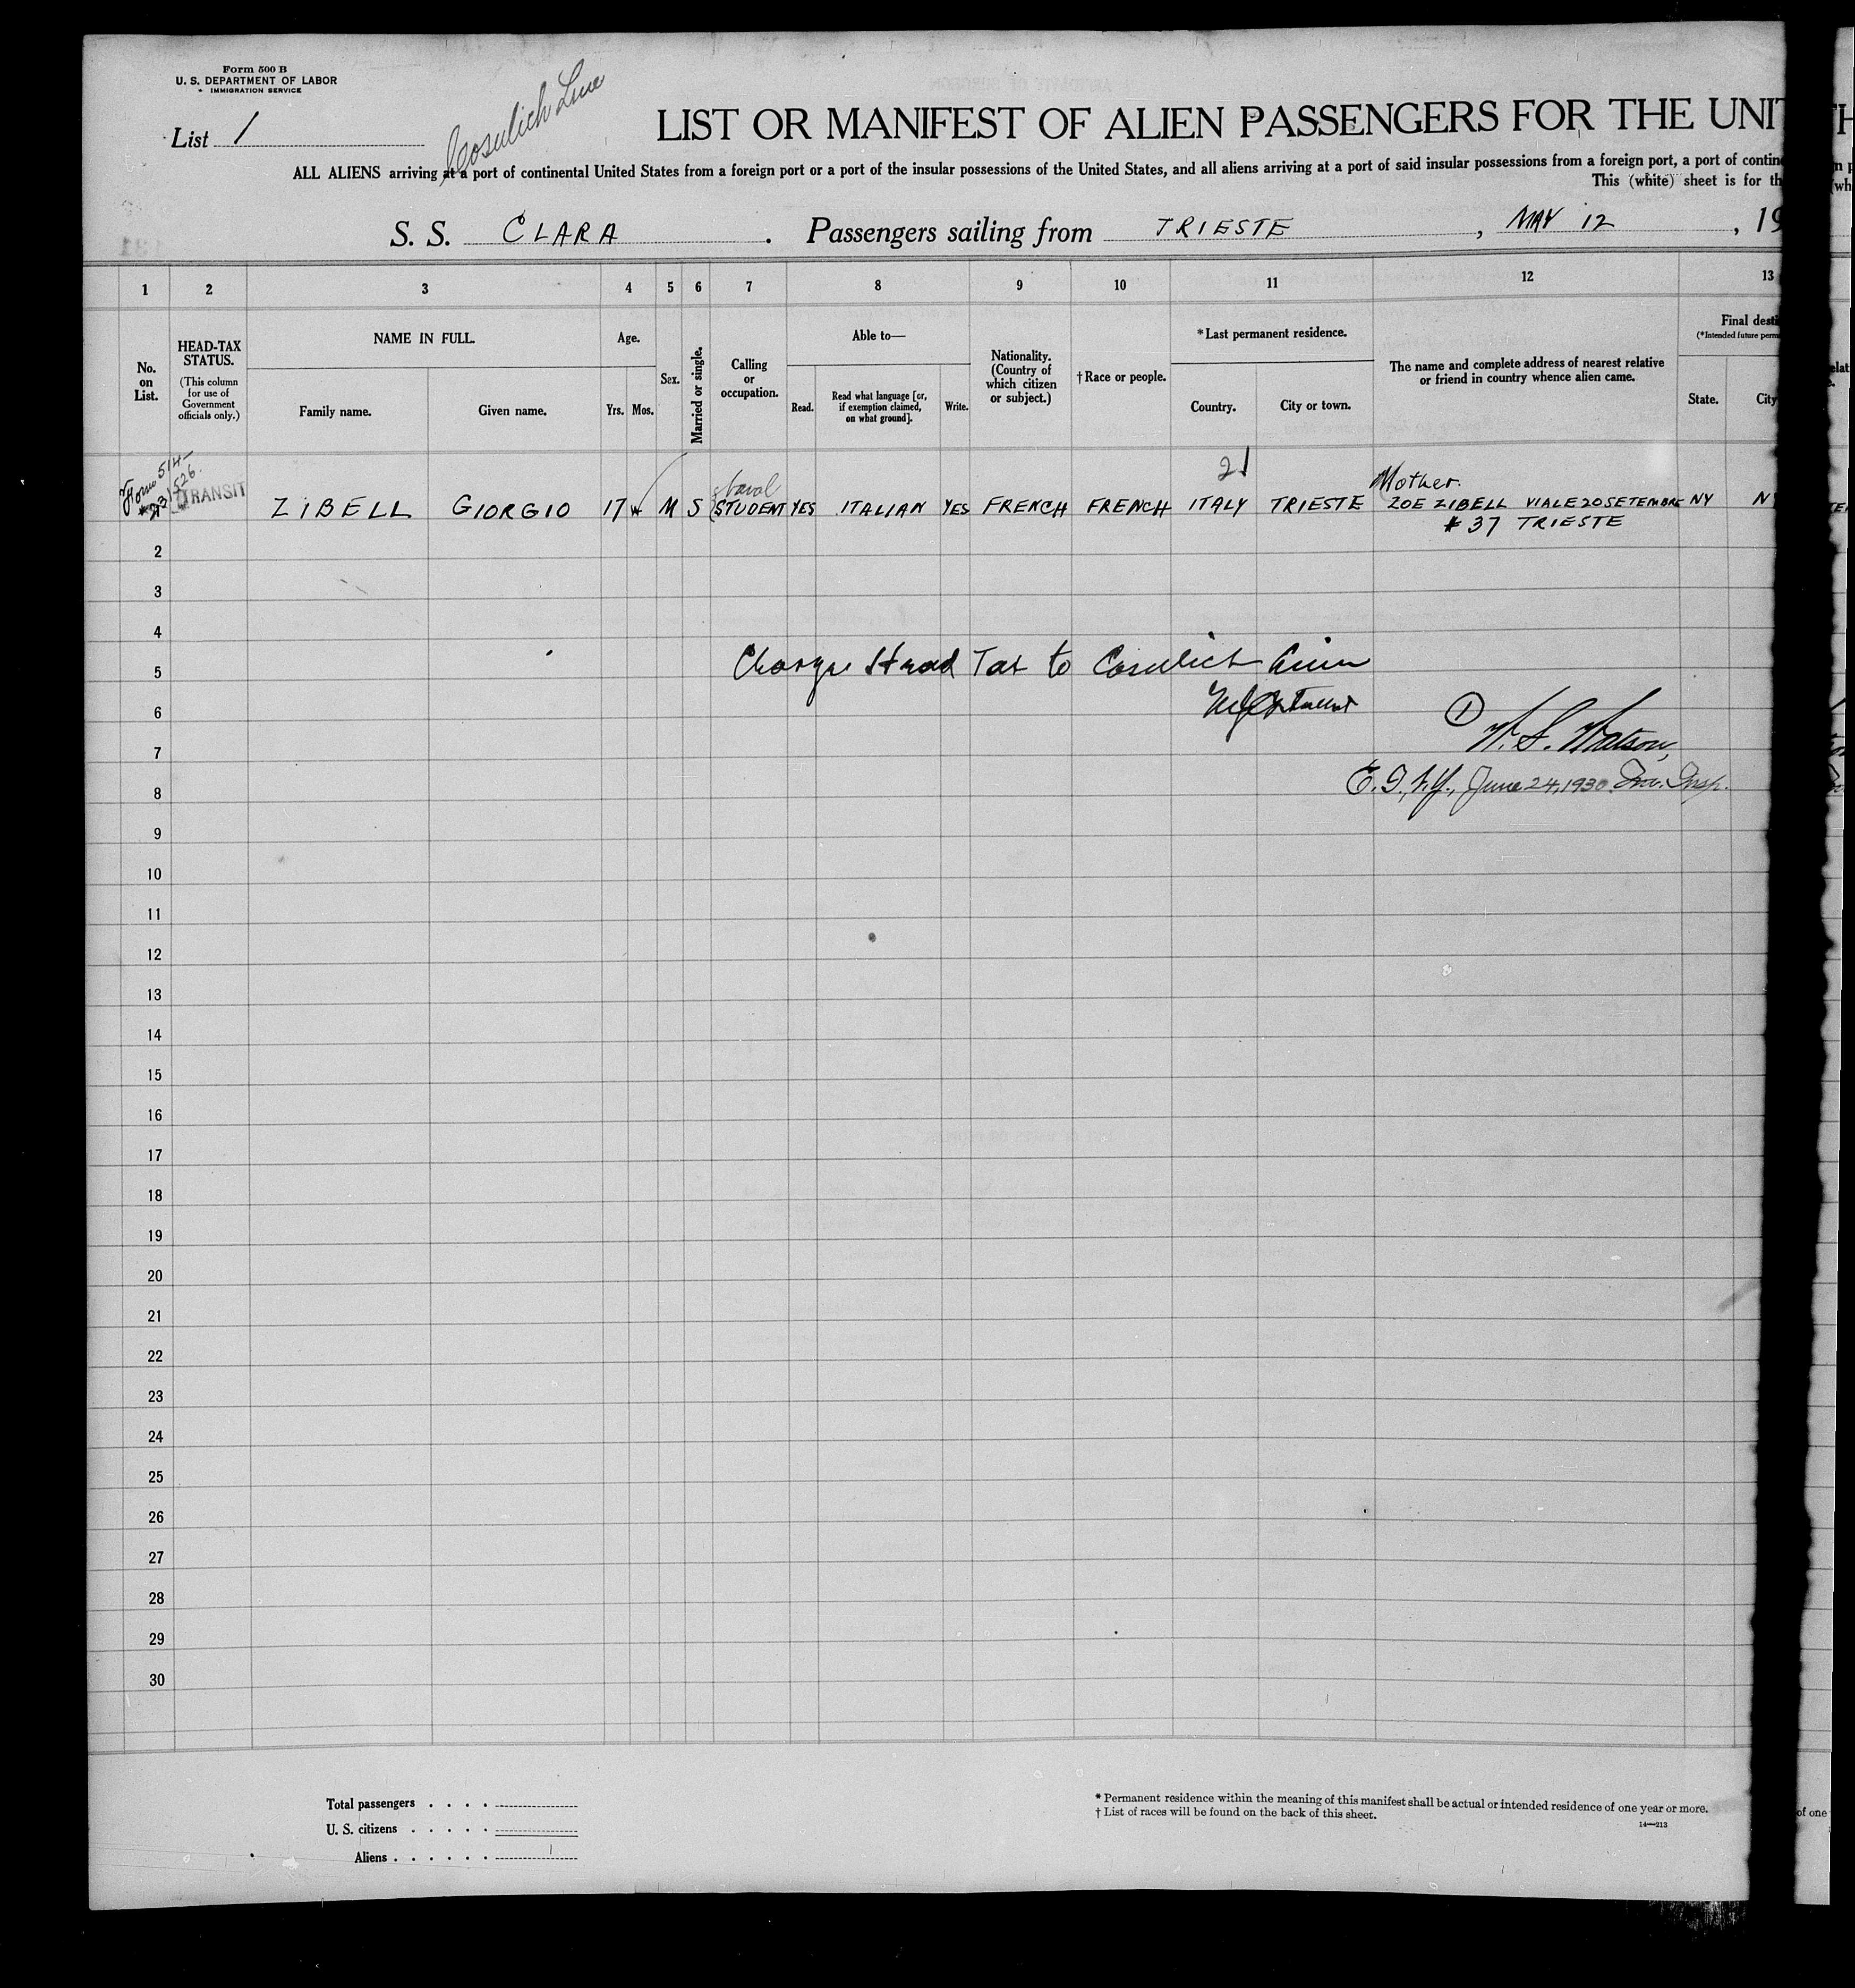 Form 500 B
U. S. DEPARTMENT OF LABOR
IMMIGRATION SERVICE
List 1
Cosulich Line
LIST OR MANIFEST OF ALIEN PASSENGERS FOR THE UNIT
ALL ALIENS arriving at a port of continental United States from a foreign port or a port of the insular possessions of the United States, and all aliens arriving at a port of said insular possessions from a foreign port, a port of contin
This (white) sheet is for th
S. S. CLARA. Passengers sailing from TRIESTE, MAY 12, 19
1 2 3 4 5 6 7 8 9 10 11 12 13
No. on List.
HEAD-TAX STATUS.
(This column for use of Government officials only.)
NAME IN FULL.
Family name.
Given name.
Age.
Yrs. Mos.
Sex.
Married or single.
Calling or occupation.
Able to—
Read.
Read what language [or, if exemption claimed, on what ground].
Write.
Nationality. (Country of which citizen or subject.)
† Race or people.
*Last permanent residence.
Country.
City or town.
The name and complete address of nearest relative or friend in country whence alien came.
Final desti
(*Intended future perm
State.
City
Form 514—
TRANSIT
21
Naval
Mother.
ZIBELL GIORGIO 17 M S STUDENT YES ITALIAN YES FRENCH FRENCH ITALY TRIESTE ZOE ZIBELL VIALE 20 SETEMBRE NY N
# 37 TRIESTE
2
3
4
Charge Head Tax to Cosulich Line
5
6
①
W. S. Watson,
7
E. I., N.Y., June 24, 1930. Imm. Insp.
8
9
10
11
12
13
14
15
16
17
18
19
20
21
22
23
24
25
26
27
28
29
30
Total passengers . . . .
U. S. citizens . . . . .
Aliens . . . . . . 1
* Permanent residence within the meaning of this manifest shall be actual or intended residence of one year or more.
† List of races will be found on the back of this sheet.
14—213
of one